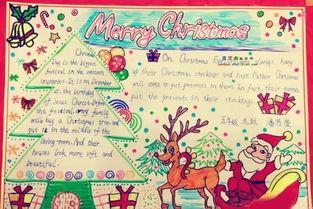 Merry Christmas
Christmas
Day is the biggest
festival in the western
countries. It is on December
the birthday
of Jesus Christ
my family
a Christmas tree and
put it in the middle of the
living room. And their
houses look more soft and
beautiful.
On Christmas always hang
up their Christmas stockings and hope Father Christmas
will come to put presents in them. In fact, their parents
put the presents in their stockings.